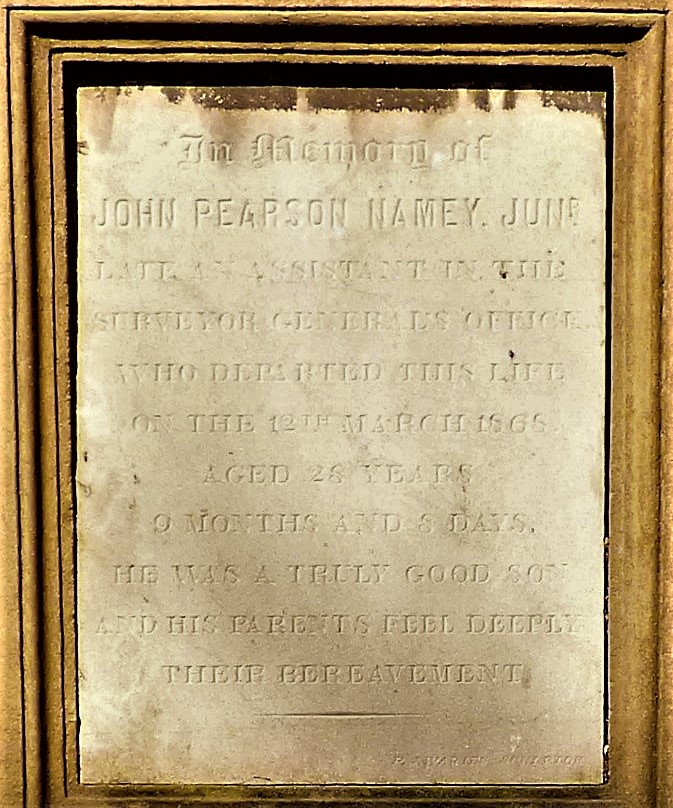 In Memory of
JOHN PEARSON NAMEY. JUNR
LATE AN ASSISTANT IN THE
SURVEYOR GENERAL'S OFFICE.
WHO DEPARTED THIS LIFE
ON THE 12TH MARCH 1868.
AGED 28 YEARS
9 MONTHS AND 8 DAYS.
HE WAS A TRULY GOOD SON
AND HIS PARENTS FEEL DEEPLY
THEIR BEREAVEMENT